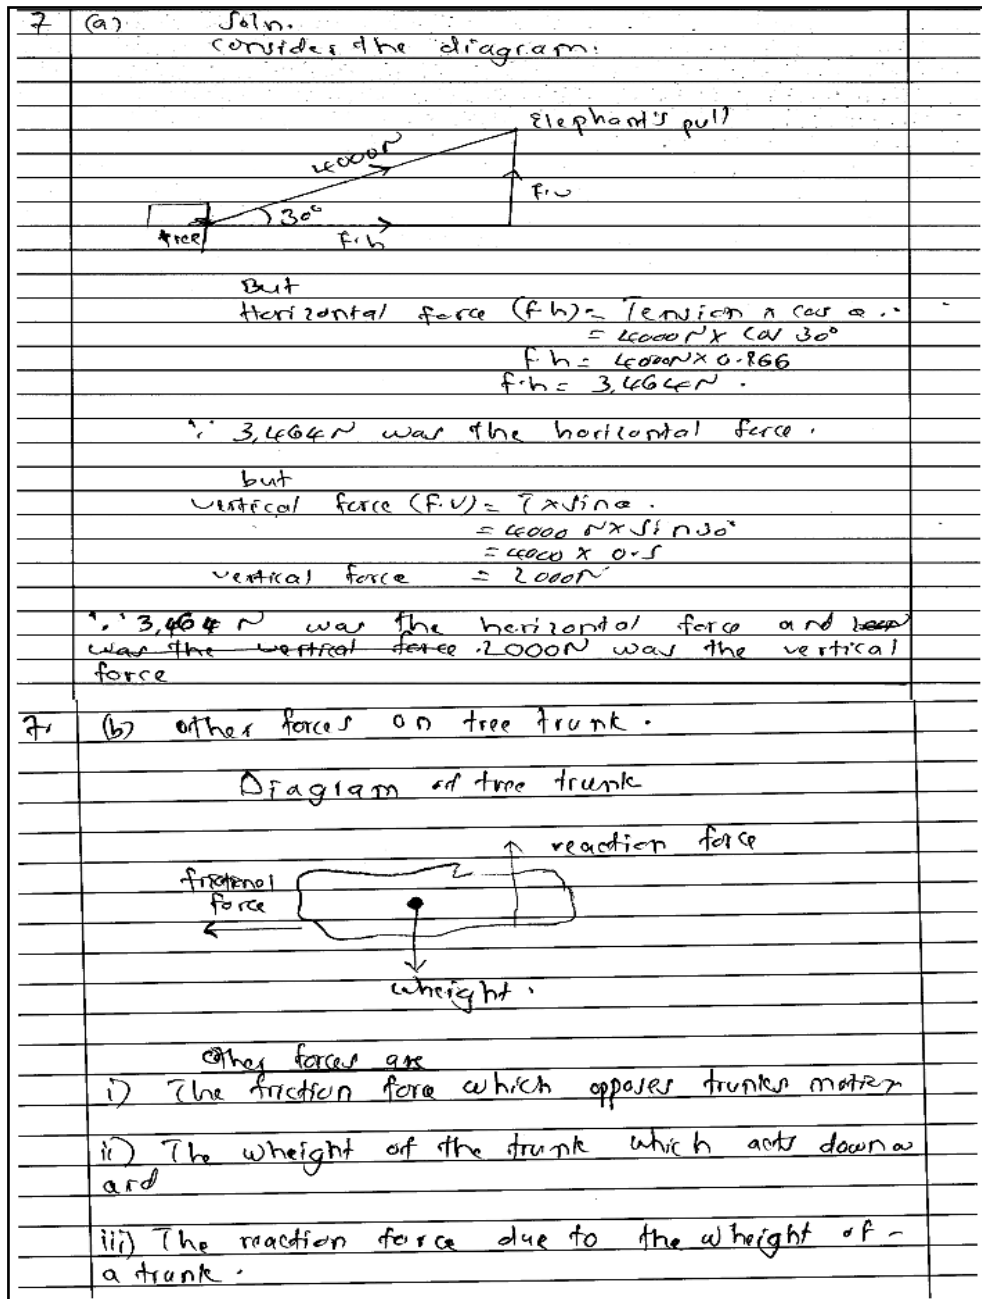 7 (a) Soln.
consider the diagram.
Elephant's pull
4000N
F.v
30°
tree
F.h
But
Horizontal force (F.h) = Tension x cos θ.
= 4000N x cos 30°
F.h = 4000N x 0.866
F.h = 3,464N.
∵ 3,464N was the horizontal force.
but
vertical force (F.V) = T x sin θ.
= 4000 N x sin 30°
= 4000 x 0.5
vertical force = 2000N
∵ 3,464 N was the horizontal force and
was the vertical force. 2000N was the vertical
force
7. (b) other forces on tree trunk.
Diagram of tree trunk
reaction force
frictional
force
wheight.
Other forces are
i) The friction force which opposes trunks motion
ii) The wheight of the trunk which acts downw
ard
iii) The reaction force due to the wheight of -
a trunk.